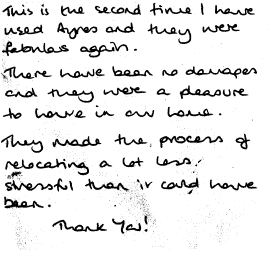 This is the second time I have
used Ayres and they were
fabulous again.
There have been no damages
and they were a pleasure
to have in our home.
They made the process of
relocating a lot less
stressful than it could have
been.
Thank You!